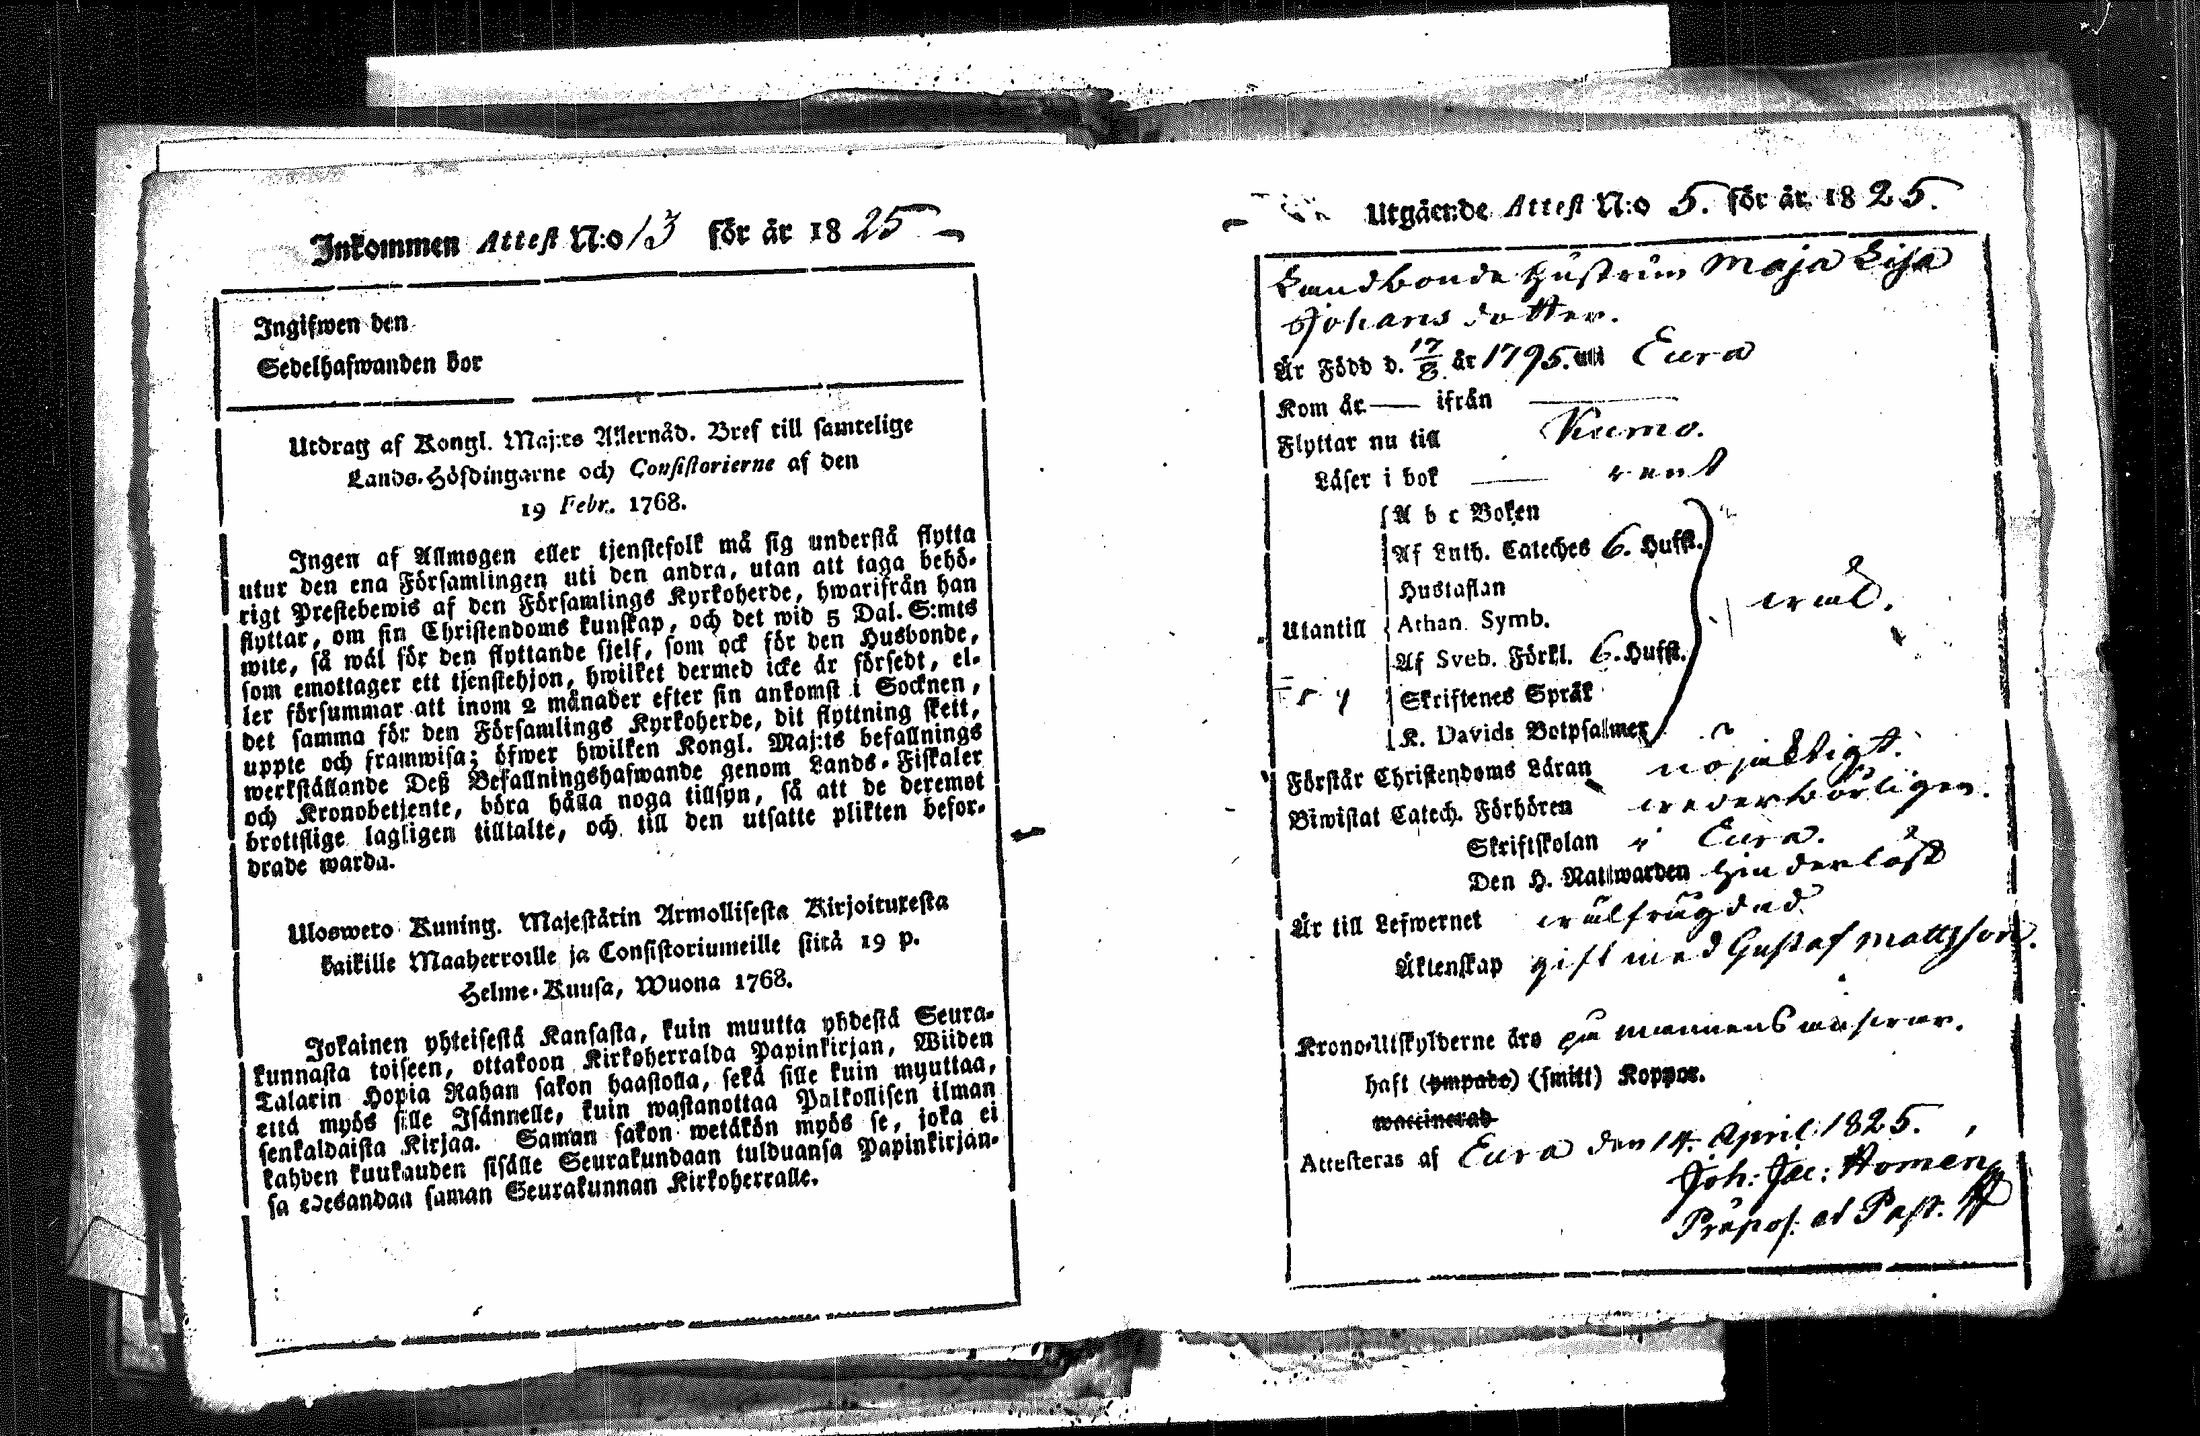 Inkommen Attest N:o 13 för år 1825
Ingifwen den
Sedelhafwanden bor
Utdrag af Kongl. Maj:ts Allernåd. Bref till samtelige
Lands-Höfdingarne och Consistorierne af den
19 Febr. 1768.
Ingen af Allmogen eller tjenstefolk må sig understå flytta
utur den ena Församlingen uti den andra, utan att taga behö-
rigt Prestebewis af den Församlings Kyrkoherde, hwarifrån han
flyttar, om sin Christendoms kunskap, och det wid 5 Dal. S:mts
wite, så wäl för den flyttande sjelf, som ock för den Husbonde,
som emottager ett tjenstehjon, hwilket dermed icke är försedt, el-
ler försummar att inom 2 månader efter sin ankomst i Socknen,
det samma för den Församlings Kyrkoherde, dit flyttning skett,
uppte och framwisa; öfwer hwilken Kongl. Maj:ts befallnings
werkställande Deß Befallningshafwande genom Lands-Fiskaler
och Kronobetjente, böra hålla noga tillsyn, så att de deremot
brottslige lagligen tilltalte, och till den utsatte plikten befor-
drade warda.
Ulosweto Kuning. Majestätin Armollisesta Kirjoituxesta
kaikille Maaherroille ja Consistoriumeille siitä 19 p.
Helme-Kuusa, Wuona 1768.
Jokainen yhteisestä Kansasta, kuin muutta yhdestä Seura-
kunnasta toiseen, ottakoon Kirkoherralda Papinkirjan, Wiiden
Talarin Hopia Rahan sakon haastolla, sekä sille kuin myuttaa,
että myös sille Isännelle, kuin wastanottaa Palkollisen ilman
senkaldaista Kirjaa. Saman sakon wetäkön myös se, joka ei
kahden kuukauden sisälle Seurakundaan tulduansa Papinkirjan-
sa edesandaa saman Seurakunnan Kirkoherralle.
Utgående Attest N:o 5. för år 1825.
Landbonde Hustrun Maja Lisa
Johans dotter.
Är Född d. 17/8 år 1795. uti Eura
Kom år — ifrån —
Flyttar nu till Kumo.
Läser i bok — rent
A b c Boken
Af Luth. Cateches 6. Hufst.
Hustaflan
Utantill Athan. Symb. wäl.
Af Sveb. Förkl. 6. Hufst.
Skriftenes Språk
K. Davids Botpsalmer
Förstår Christendoms Läran nöjaktigt.
Biwistat Catech. Förhören wederbörligen.
Skriftskolan i Eura.
Den H. Nattwarden hinderlöst
Är till Lefwernet wälfrägdad
Äktenskap gift med Gustaf Mattsson.
Krono-Utskylderne äro på mannens answar.
haft (ympade) (smitt) Koppor.
waccinerad
Attesteras af Eura den 14. April 1825.
Joh: Jac: Homen
Præpos. et Past.